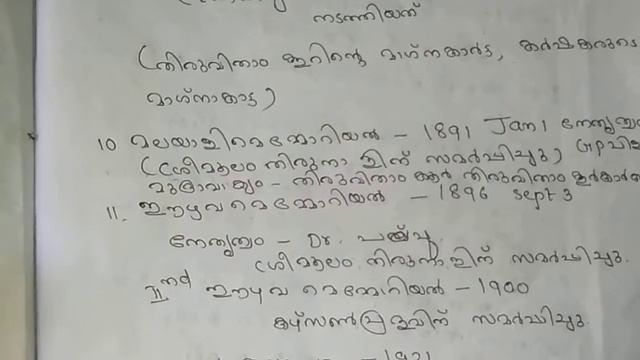 നടത്തിയത്
(തിരുവിതാംകൂറിന്റെ മാഗ്നകാർട്ട, കർഷകരുടെ
മാഗ്നാകാട്ട)
10 മലയാളി മെമ്മോറിയൽ - 1891 Jan 1 നേതൃത്വം
(ശ്രീമൂലം തിരുനാളിന് സമർപ്പിച്ചു) GP
മുദ്രാവാക്യം - തിരുവിതാംകൂർ തിരുവിതാംകൂർകാർക്ക്
11. ഈഴവ മെമ്മോറിയൽ - 1896 Sept 3
നേതൃത്വം - Dr. പല്പു
ശ്രീമൂലം തിരുനാളിന് സമർപ്പിച്ചു.
IInd ഈഴവ മെമ്മോറിയൽ - 1900
കഴ്സൺ പ്രഭുവിന് സമർപ്പിച്ചു.
- 1921